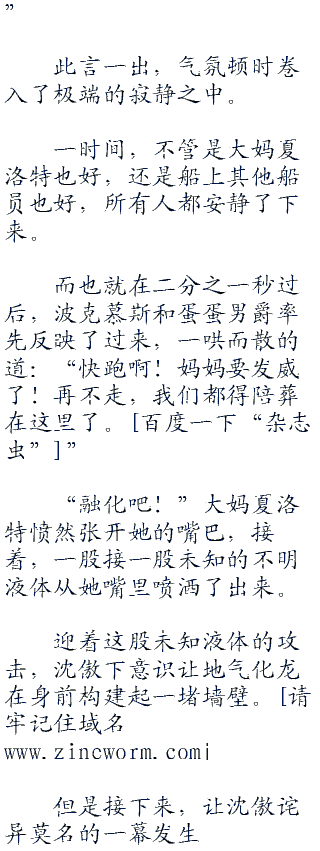 ”
此言一出，气氛顿时卷
入了极端的寂静之中。
一时间，不管是大妈夏
洛特也好，还是船上其他船
员也好，所有人都安静了下
来。
而也就在二分之一秒过
后，波克慕斯和蛋蛋男爵率
先反映了过来，一哄而散的
道：“快跑啊！妈妈要发威
了！再不走，我们都得陪葬
在这里了。[百度一下“杂志
虫”]”
“融化吧！”大妈夏洛
特愤然张开她的嘴巴，接
着，一股接一股未知的不明
液体从她嘴里喷洒了出来。
迎着这股未知液体的攻
击，沈傲下意识让地气化龙
在身前构建起一堵墙壁。[请
牢记住域名
www.zincworm.com¡
但是接下来，让沈傲诧
异莫名的一幕发生